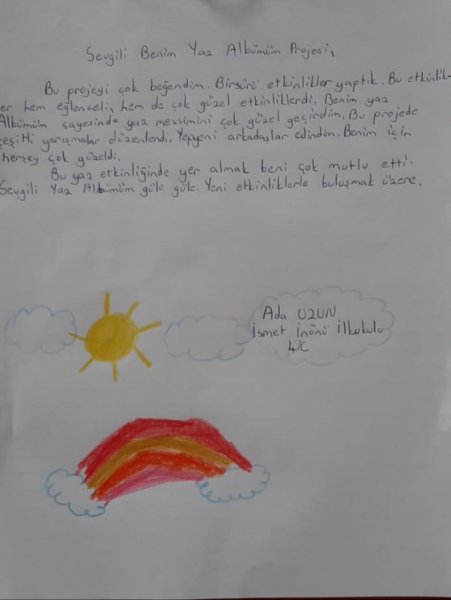 Sevgili Benim Yaz Albümüm Projesi,
Bu projeyi çok beğendim. Birsürü etkinlikler yaptık. Bu etkinlik-
er hem eğlenceli, hem de çok güzel etkinliklerdi. Benim yaz
Albümüm sayesinde yaz mevsimini çok güzel geçirdim. Bu projede
çeşitli yarışmalar düzenlendi. Yepyeni arkadaşlar edindim. Benim için
herşey çok güzeldi.
Bu yaz etkinliğinde yer almak beni çok mutlu etti.
Sevgili Yaz Albümüm güle güle. Yeni etkinliklerle buluşmak üzere.
Ada UZUN
İsmet İnönü İlkokulu
4/C